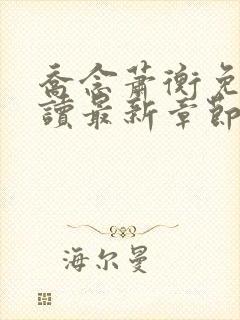 喬念蕭衡免
讀最新章節
海尔曼